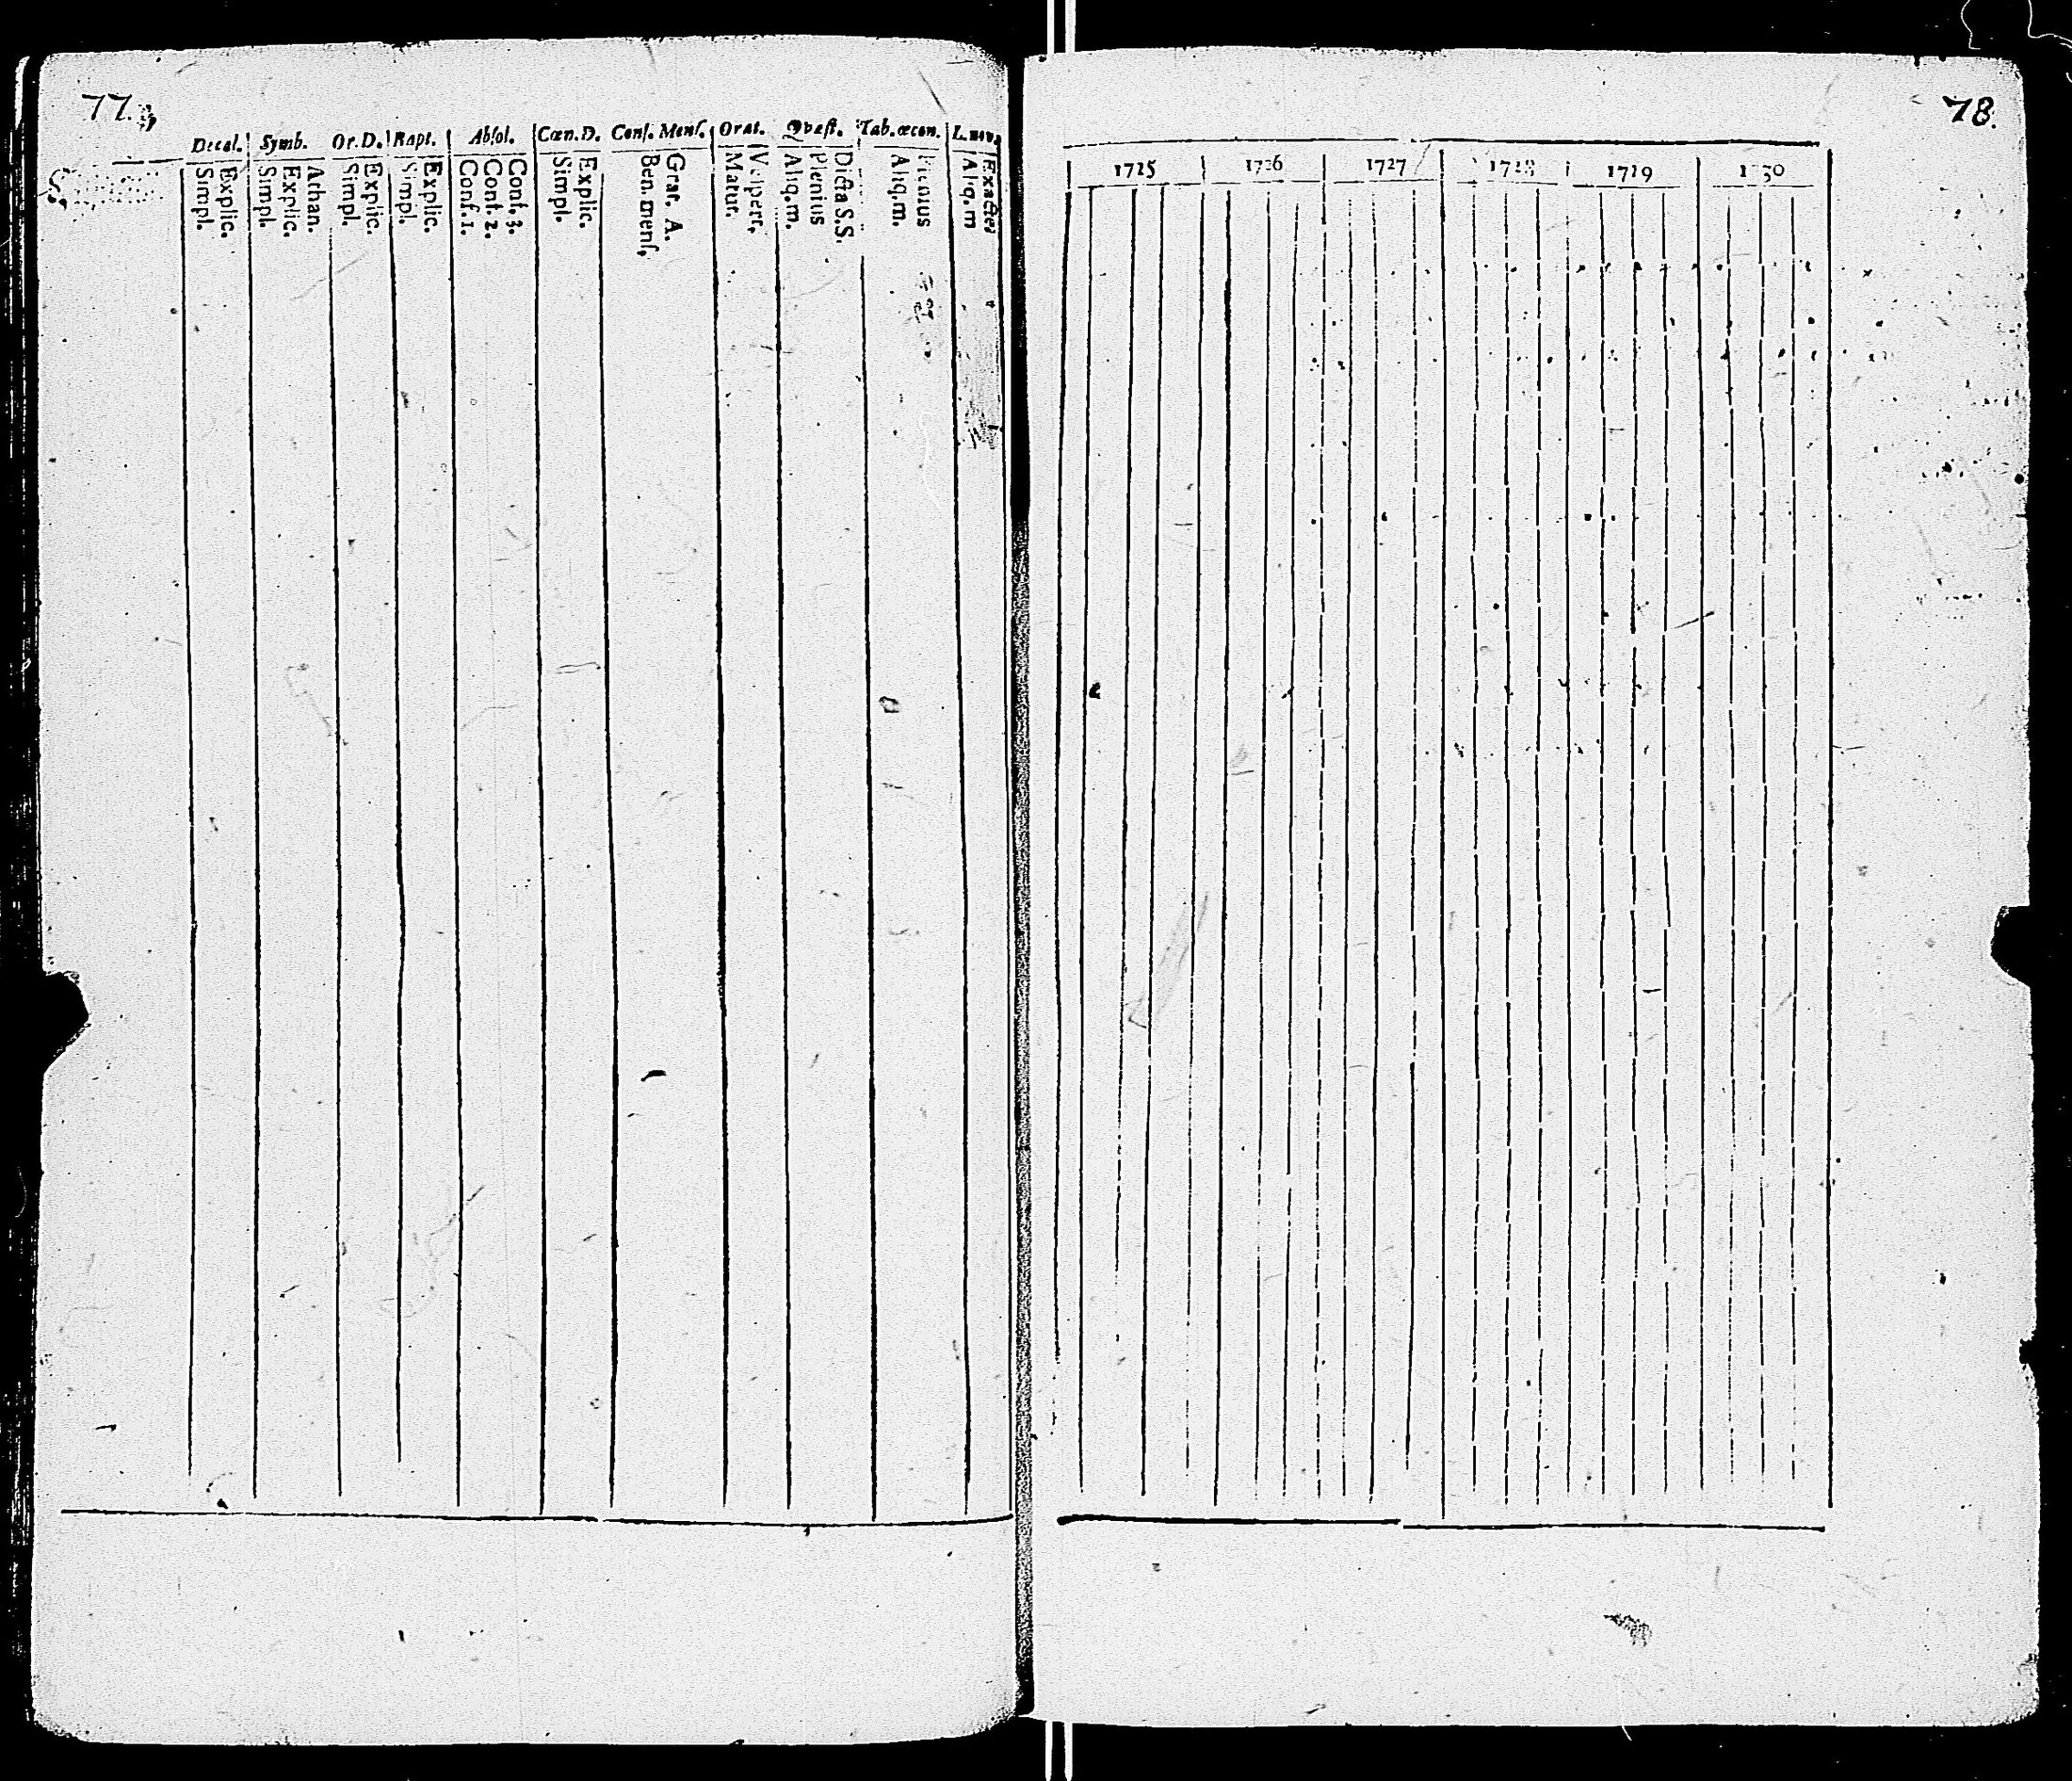 77.
Decal. Symb. Or. D. Bapt. Abſol. Cœn. D. Conf. Menſ. Orat. Qvæſt. Tab. œcon. L. nov.
Explic.
Simpl.
Athan.
Explic.
Simpl.
Explic.
Simpl.
Explic.
Simpl.
Conf. 3.
Conf. 2.
Conf. 1.
Explic.
Simpl.
Grat. A.
Ben. menſ.
Veſpert.
Matut.
Dicta S.S.
Plenius
Aliq.m.
Plenius
Aliq.m.
Exactè
Aliq.m
78.
1725 1726 1727 1728 1729 1730